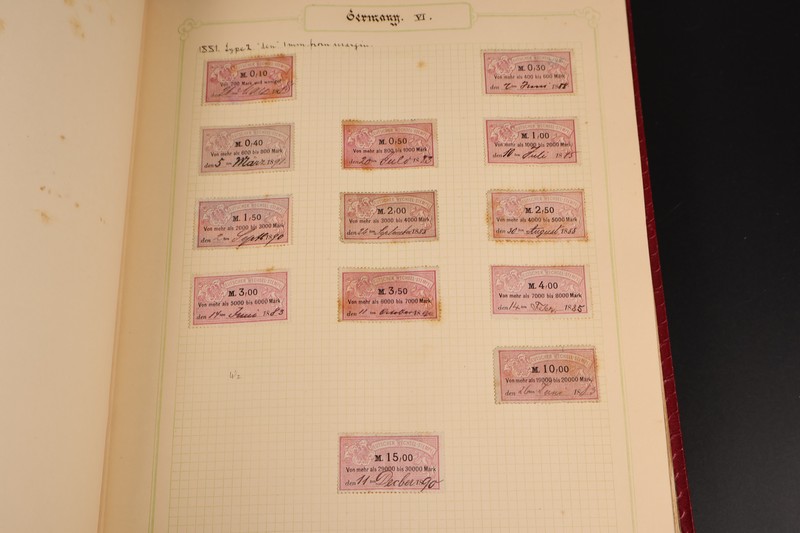 Germany. VI.
1881. Type 2 'den' 1 mm. from margin.
M. 0,10
Von 200 Mark und weniger
M. 0,30
Von mehr als 400 bis 600 Mark
den 2 ten Juni 1888
M. 0,40
Von mehr als 600 bis 800 Mark
den 5 ten März 189
M. 0,50
Von mehr als 800 bis 1000 Mark
den 20 18 83
M. 1,00
Von mehr als 1000 bis 2000 Mark
den 16 ten Juli 1885
M. 1,50
Von mehr als 2000 bis 3000 Mark
den Sept 1890
M. 2,00
Von mehr als 3000 bis 4000 Mark
den 26 ten September 1888
M. 2,50
Von mehr als 4000 bis 5000 Mark
den 30 ten August 1888
M. 3,00
Von mehr als 5000 bis 6000 Mark
den 14 ten Juni 1883
M. 3,50
Von mehr als 6000 bis 7000 Mark
den 11 ten October 18
M. 4,00
Von mehr als 7000 bis 8000 Mark
den 14 ten 1885
4½
DEUTSCHER WECHSEL-STEMPEL
M. 10,00
Von mehr als 18000 bis 20000 Mark
den 18
DEUTSCHER WECHSEL-STEMPEL
M. 15,00
Von mehr als 28000 bis 30000 Mark
den 11 ten Decber 1890